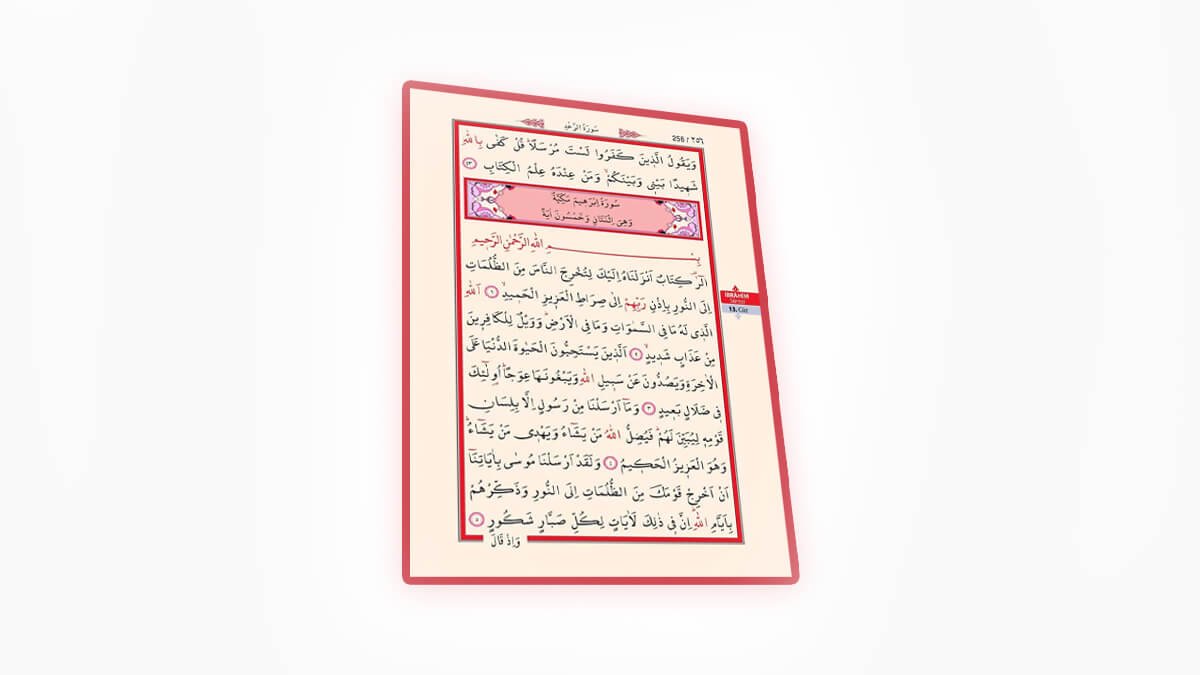 سُورَةُ الرَّعْدِ
256 / ٢٥٦
وَيَقُولُ الَّذٖينَ كَفَرُوا لَسْتَ مُرْسَلًاؕ قُلْ كَفٰى بِاللّٰهِ
شَهٖيدًا بَيْنٖي وَبَيْنَكُمْۙ وَمَنْ عِنْدَهُ عِلْمُ الْكِتَابِ ٤٣
سُورَةُ اِبْرٰهٖيمَ مَكِّيَّةٌ
وَهِيَ اِثْنَتَانِ وَخَمْسُونَ اٰيَةً
بِسْمِ اللّٰهِ الرَّحْمٰنِ الرَّحٖيمِ
الٓرٰ كِتَابٌ اَنْزَلْنَاهُ اِلَيْكَ لِتُخْرِجَ النَّاسَ مِنَ الظُّلُمَاتِ
اِلَى النُّورِ بِاِذْنِ رَبِّهِمْ اِلٰى صِرَاطِ الْعَزٖيزِ الْحَمٖيدِۙ ١ اَللّٰهِ
الَّذٖي لَهُ مَا فِي السَّمٰوَاتِ وَمَا فِي الْاَرْضِؕ وَوَيْلٌ لِلْكَافِرٖينَ
مِنْ عَذَابٍ شَدٖيدٍۙ ٢ اَلَّذٖينَ يَسْتَحِبُّونَ الْحَيٰوةَ الدُّنْيَا عَلَى
الْاٰخِرَةِ وَيَصُدُّونَ عَنْ سَبٖيلِ اللّٰهِ وَيَبْغُونَهَا عِوَجًاؕ اُو۬لٰٓئِكَ
فٖي ضَلَالٍ بَعٖيدٍ ٣ وَمَٓا اَرْسَلْنَا مِنْ رَسُولٍ اِلَّا بِلِسَانِ
قَوْمِهٖ لِيُبَيِّنَ لَهُمْؕ فَيُضِلُّ اللّٰهُ مَنْ يَشَٓاءُ وَيَهْدٖي مَنْ يَشَٓاءُؕ
وَهُوَ الْعَزٖيزُ الْحَكٖيمُ ٤ وَلَقَدْ اَرْسَلْنَا مُوسٰى بِاٰيَاتِنَٓا
اَنْ اَخْرِجْ قَوْمَكَ مِنَ الظُّلُمَاتِ اِلَى النُّورِ وَذَكِّرْهُمْ
بِاَيَّامِ اللّٰهِؕ اِنَّ فٖي ذٰلِكَ لَاٰيَاتٍ لِكُلِّ صَبَّارٍ شَكُورٍ ٥
وَاِذْ قَالَ
IBRÂHÎM
SÛRESİ
13. Cüz